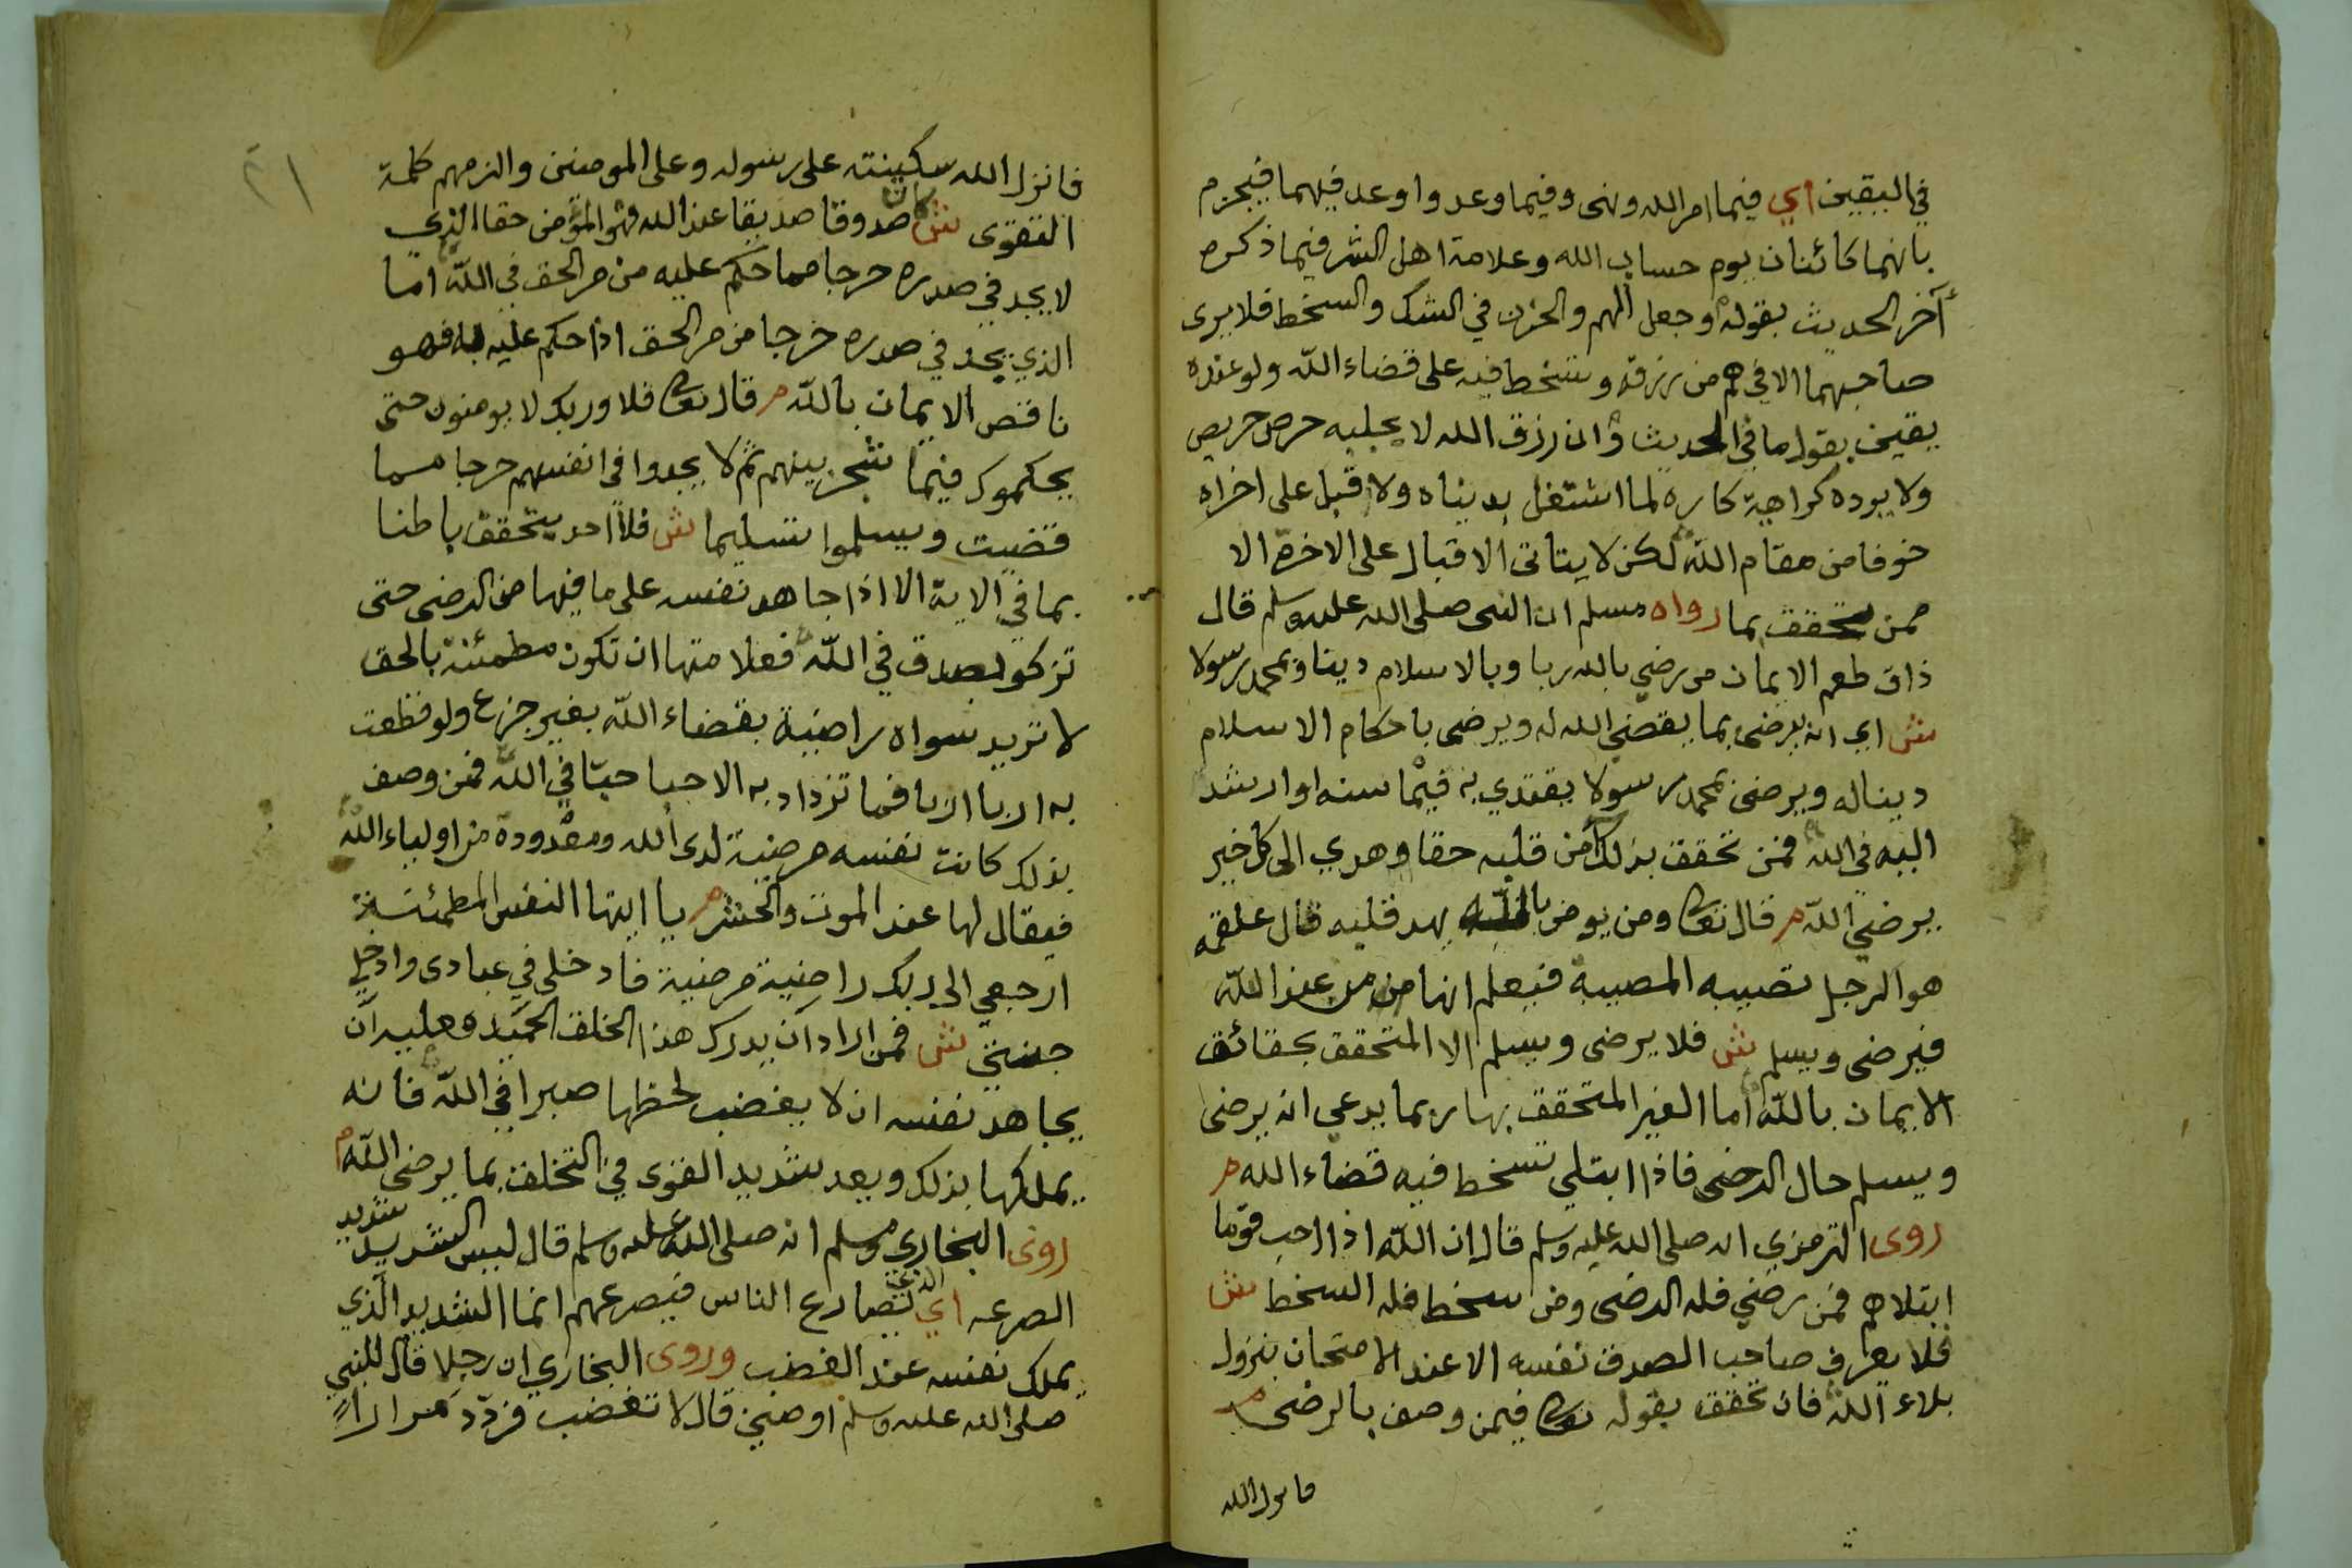 في اليقين اي فيما امر الله ونهى وفيما وعد واوعد فيهما فيجزم
بانهما كائنان يوم حساب الله وعلامة اهل الشر فيما ذكره
آخر الحديث بقوله وجعل الهم والحزن في الشك والسخط فلا يرى
صاحبهما الا في هم من رزقه وسخط فيه على قضاء الله ولو عنده
يقين بقول ما في الحديث وان رزق الله لا يجلبه حرص حريص
ولا يرده كراهية كاره لما اشتغل بدنياه ولاقبل على اخراه
خوفا من مقام الله لكن لا يتاتى الاقبال على الاخرة الا
ممن تحقق بما رواه مسلم ان النبي صلى الله عليه وسلم قال
ذاق طعم الايمان من رضي بالله ربا وبالاسلام دينا وبمحمد رسولا
ش اي انه يرضى بما يقضي الله له ويرضى باحكام الاسلام
دينا له ويرضى بمحمد رسولا يقتدي به فيما سنه او ارشد
اليه في الله فمن تحقق بذلك امن قلبه حقا وهدي الى كل خير
يرضي الله م قال تعالى ومن يومن بالله يهد قلبه قال علقمه
هو الرجل تصيبه المصيبة فيعلم انها من عند الله
فيرضى ويسلم ش فلا يرضى ويسلم الا المتحقق بحقائق
الايمان بالله اما الغير المتحقق بها ربما يدعي انه يرضى
ويسلم حال الرضى فاذا ابتلي تسخط فيه قضاء الله م
روى الترمزي انه صلى الله عليه وسلم قال ان الله اذا احب قوما
ابتلاهم فمن رضي فله الرضى ومن سخط فله السخط ش
فلا يعرف صاحب الصدق نفسه الا عند الامتحان بنزول
بلاء الله فان تحقق بقوله تعالى فيمن وصف بالرضى م
فانزل الله
٢١
فانزل الله سكينته على رسوله وعلى المومنين والزمهم كلمة
التقوى ش كان صدوقا صديقا عند الله فهو المؤمن حقا الذي
لا يجد في صدره حرجا مما حكم عليه من مر الحق في الله اما
الذي يجد في صدره حرجا من مر الحق اذا حكم عليه به فهو
ناقص الايمان بالله م قال تعالى فلا وربك لا يومنون حتى
يحكموك فيما شجر بينهم ثم لا يجدوا في انفسهم حرجا مما
قضيت ويسلموا تسليما ش فلا احد يتحقق باطنا
بما في الاية الا اذا جاهد نفسه على ما فيها من الرضى حتى
تزكو بصدق في الله فعلامتها ان تكون مطمئنة بالحق
لا تريد سواه راضية بقضاء الله بغير جزع ولو قطعت
به اربا اربا فما تزداد به الا حبا حبا في الله فمن وصف
بذلك كانت نفسه مرضية لدى الله ومعدودة من اولياء الله
فيقال لها عند الموت والحشر م يا ايتها النفس المطمئنة
ارجعي الى ربك راضية مرضية فادخلي في عبادى وادخلي
جنتي ش فمن اراد ان يدرك هذا الخلق الحميده فعليه ان
يجاهد نفسه ان لا يغضب لحظها صبرا في الله فانه
يملكها بذلك ويعد شديد القوى في التخلق بما يرضي الله م
روى البخاري ومسلم انه صلى الله عليه وسلم قال ليس الشديد شديد
الصرعه اي الذي يصارع الناس فيصرعهم انما الشديد الذي
يملك نفسه عند الغضب وروى البخاري ان رجلا قال للنبي
صلى الله عليه وسلم اوصني قال لا تغضب فردد مرارا